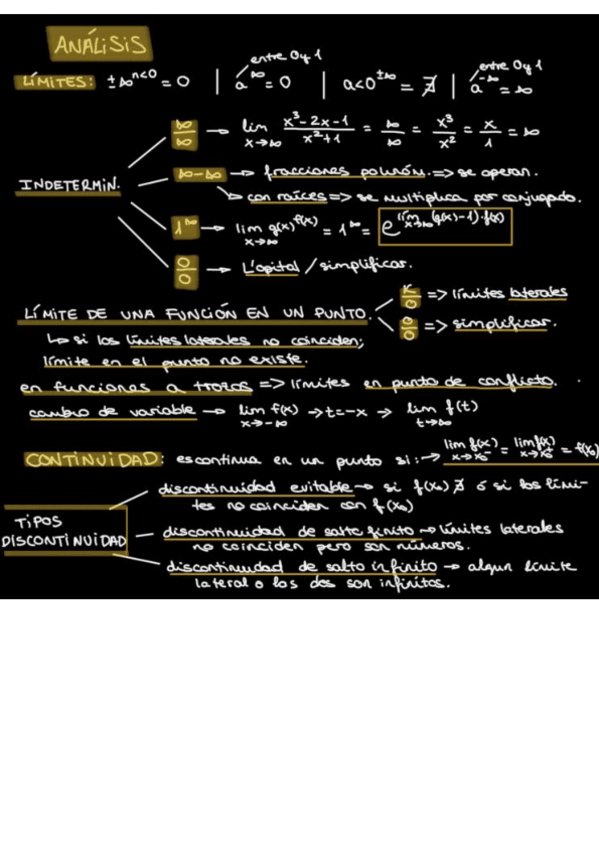 ANÁLISIS
LÍMITES: ±∞ⁿ<⁰ = 0 | a^∞ = 0 (entre 0 y 1) | a<0^±∞ = ∄ | a^-∞ = ∞ (entre 0 y 1)
INDETERMIN.
∞/∞ → lim x→∞ x³-2x-1/x²+1 = ∞/∞ = x³/x² = x/1 = ∞
∞-∞ → fracciones polinóm. => se operan.
↳ con raíces => se multiplica por conjugado.
1^∞ → lim x→∞ g(x)^f(x) = 1^∞ = e^lim x→∞ (g(x)-1)·f(x)
0/0 → L'opital / simplificar.
LÍMITE DE UNA FUNCIÓN EN UN PUNTO.
K/0 => límites laterales
0/0 => simplificar.
↳ si los límites laterales no coinciden;
límite en el punto no existe.
en funciones a trozos => límites en punto de conflicto.
cambio de variable → lim x→-∞ f(x) → t=-x → lim t→∞ f(t)
CONTINUIDAD: es continua en un punto si: → lim x→x₀⁻ f(x) = lim x→x₀⁺ f(x) = f(x₀)
TIPOS
DISCONTINUIDAD
discontinuidad evitable → si f(x₀) ∄ ó si los lími-
tes no coinciden con f(x₀)
discontinuidad de salto finito → límites laterales
no coinciden pero son números.
discontinuidad de salto infinito → algun límite
lateral o los dos son infinitos.